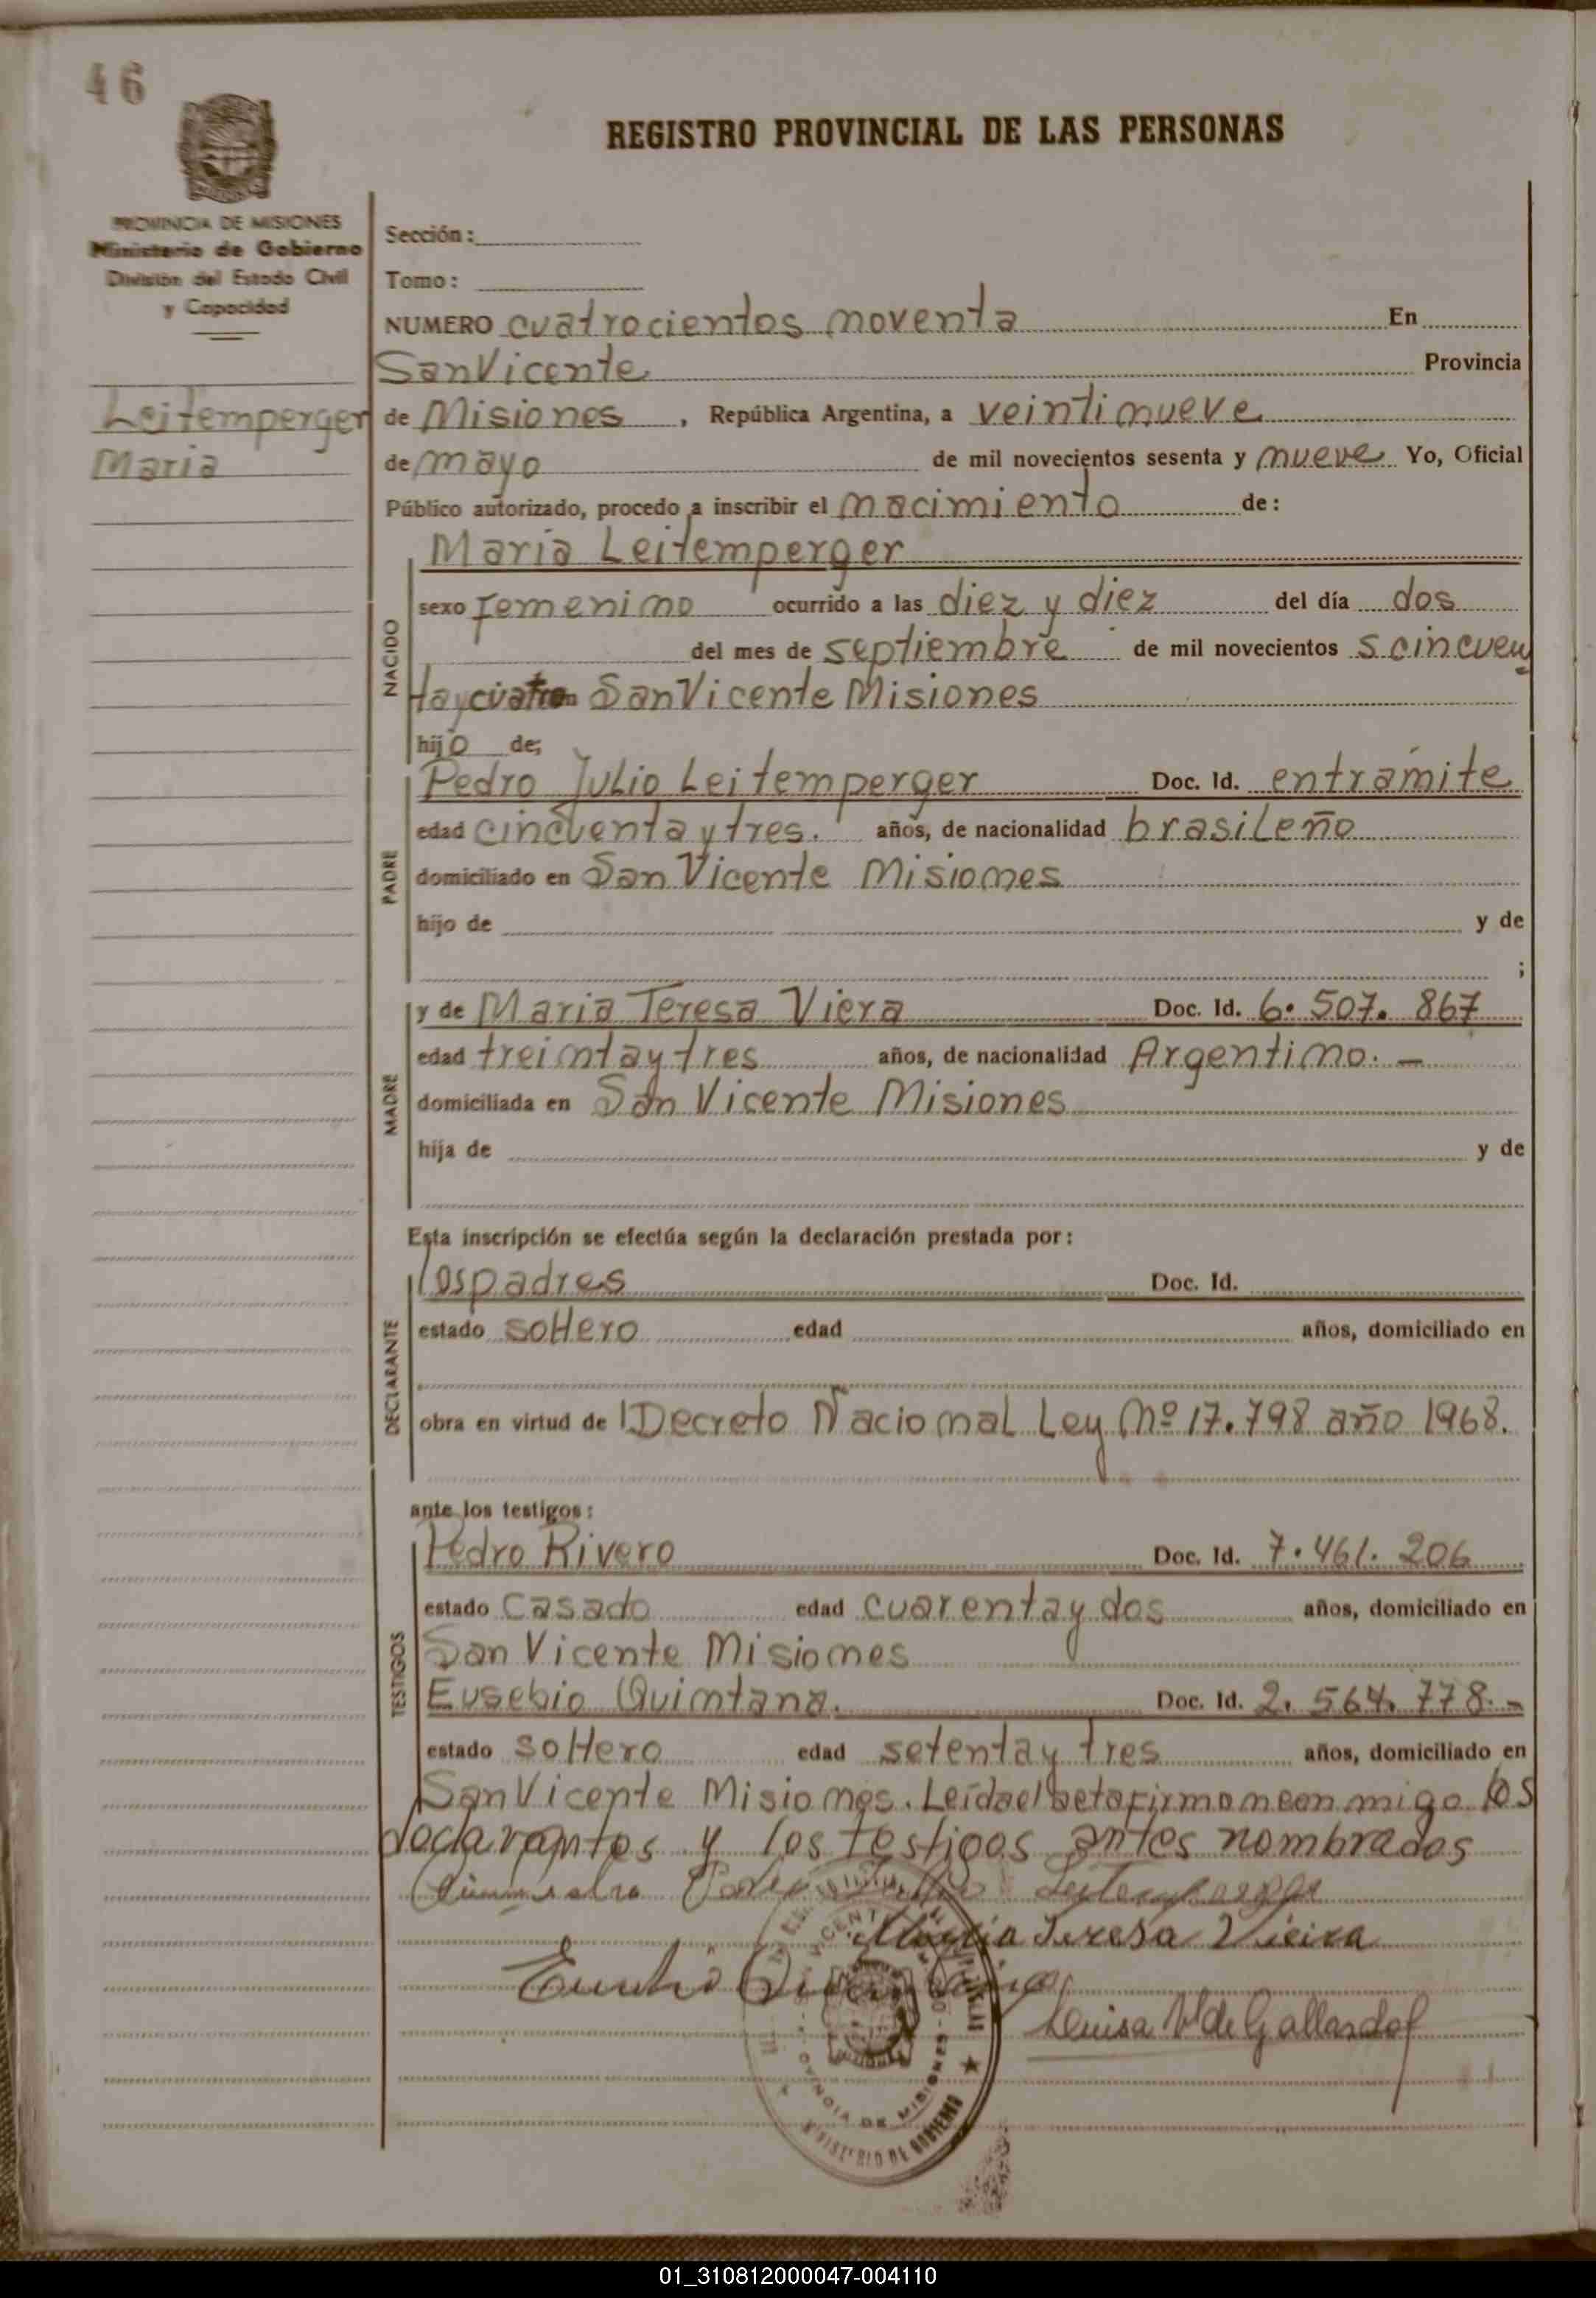 46
REGISTRO PROVINCIAL DE LAS PERSONAS
PROVINCIA DE MISIONES
Ministerio de Gobierno
División del Estado Civil
y Capacidad
Leitemperger
Maria
Sección:
Tomo:
NUMERO cuatrocientos noventa En
San Vicente Provincia
de Misiones, República Argentina, a veintinueve
de mayo de mil novecientos sesenta y nueve Yo, Oficial
Público autorizado, procedo a inscribir el nacimiento de:
Maria Leitemperger
NACIDO
sexo femenino ocurrido a las diez y diez del día dos
del mes de septiembre de mil novecientos s cincuen
ta y cuatro en San Vicente Misiones
hijo de;
PADRE
Pedro Julio Leitemperger Doc. Id. en tramite
edad cincuenta y tres. años, de nacionalidad brasileño
domiciliado en San Vicente Misiones
hijo de y de
;
MADRE
y de Maria Teresa Viera Doc. Id. 6.507.867
edad treinta y tres años, de nacionalidad Argentino.-
domiciliada en San Vicente Misiones
hija de y de
Esta inscripción se efectúa según la declaración prestada por:
DECLARANTE
los padres Doc. Id.
estado soltero edad años, domiciliado en
obra en virtud de Decreto Nacional Ley Nº 17.798 año 1968.
ante los testigos:
TESTIGOS
Pedro Rivero Doc. Id. 7.461.206
estado casado edad cuarenta y dos años, domiciliado en
San Vicente Misiones
Eusebio Quintana. Doc. Id. 2.564.778.-
estado soltero edad setenta y tres años, domiciliado en
San Vicente Misiones. Leida el acta firman con migo los
declarantes y los testigos antes nombrados
Maria Teresa Vieira
Luisa V de Gallardo
MINISTERIO DE GOBIERNO
01_310812000047-004110